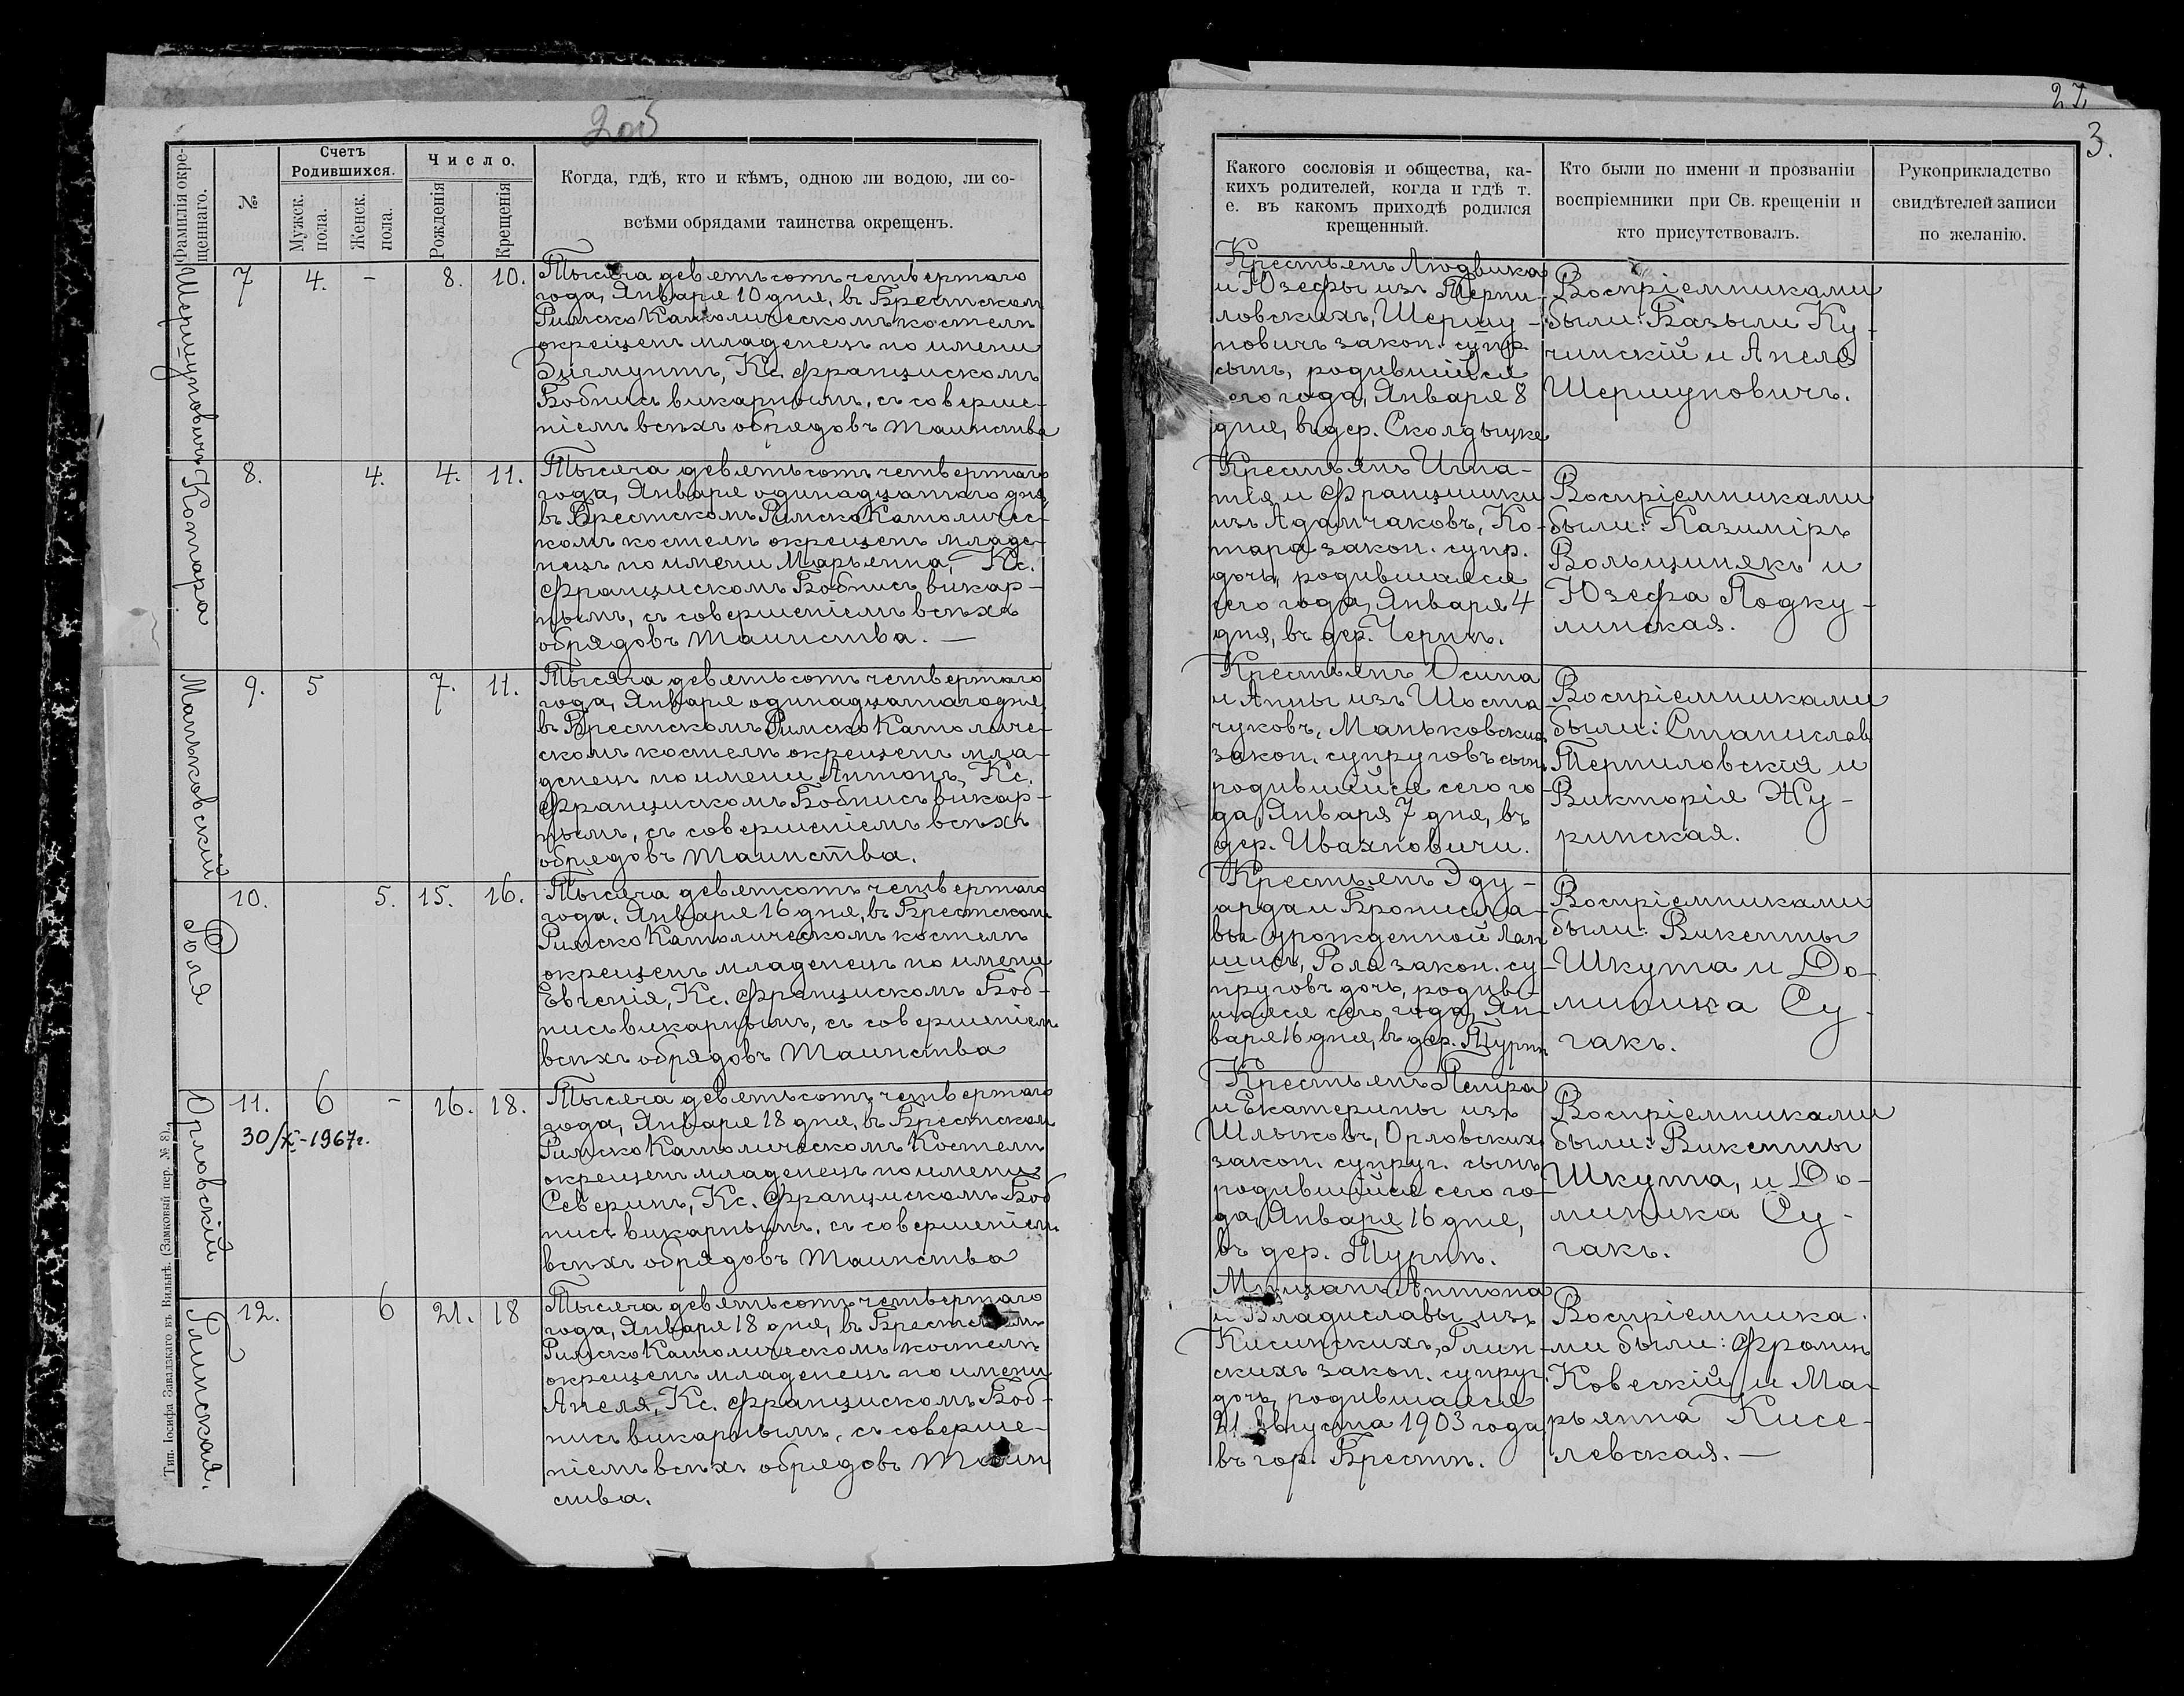 2об
Фамилія окре-
щеннаго.
№
Счетъ
Родившихся.
Мужск.
пола.
Женск.
пола.
Число.
Рожденія
Крещенія
Когда, гдѣ, кто и кѣмъ, одною ли водою, ли со-
всѣми обрядами таинства окрещенъ.
Шершуновичъ
7 4. - 8. 10.
Тысяча девятьсотъ четвертаго
года, Января 10 дня, въ Брестскомъ
Римско Католическомъ костелѣ
окрещенъ младенецъ по имени
Зигмунтъ, Кс. Францискомъ
Бобнисъ викарнымъ, съ соверше-
ніемъ всѣхъ обрядовъ Таинства
Котара
8. 4. 4. 11.
Тысяча девятьсотъ четвертаго
года, Января одинадцатаго дня,
въ Брестскомъ Римско Католичес-
комъ костелѣ окрещенъ младе-
нецъ по имени Марьянна, Кс.
Францискомъ Бобнисъ викар-
нымъ, съ совершеніемъ всѣхъ
обрядовъ Таинства. —
Маньковскій
9. 5 7. 11.
Тысяча девятьсотъ четвертаго
года, Января одинадцатаго дня,
въ Брестскомъ Римско Католиче-
скомъ костелѣ окрещенъ мла-
денецъ по имени Антонъ, Кс.
Францискомъ Бобнисъ викар-
нымъ, съ совершеніемъ всѣхъ
обрядовъ Таинства.
Роля
10. 5. 15. 16.
Тысяча девятсотъ четвертаго
года, Января 16 дня, въ Брестскомъ
Римско Католическомъ костелѣ
окрещенъ младенецъ по имени
Евгенія, Кс. Францискомъ Боб-
нисъ викарнымъ, съ совершеніемъ
всѣхъ обрядовъ Таинства
Орловскій
11. 6 - 16. 18.
30/X-1967г.
Тысяча девятьсотъ четвертаго
года, Января 18 дня, въ Брестскомъ
Римско Католическомъ Костелѣ
окрещенъ младенецъ по имени
Северинъ, Кс. Францискомъ Боб
нисъ викарнымъ, съ совершеніемъ
всѣхъ обрядовъ Таинства
Глинская.
12. 6 21. 18
Тысяча девятьсотъ четвертаго
года, Января 18 дня, въ Брестскомъ
Римско Католическомъ костелѣ
окрещенъ младенецъ по имени
Анеля, Кс. Францискомъ Боб-
нисъ викарнымъ, съ соверше-
ніемъ всѣхъ обрядовъ Таин
ства.
Тип. Іосифа Завадзкаго въ Вильнѣ. (Замковый пер. № 8).
27
3.
Какого сословія и общества, ка-
кихъ родителей, когда и гдѣ т.
е. въ какомъ приходѣ родился
крещенный.
Кто были по имени и прозваніи
воспріемники при Св. крещеніи и
кто присутствовалъ.
Рукоприкладство
свидѣтелей записи
по желанію.
Крестьянъ Людвика
и Юзефы изъ Терпи-
ловскихъ, Шершу-
новичъ закон. супр.
сынъ, родившійся
сего года, Января 8
дня, въ дер. Сколдычке
Воспріемниками
были: Базыли Ку-
чинскій и Анеля
Шершуновичъ.
Крестьянъ Игна-
тія и Францишки
изъ Адамчаковъ, Ко-
тара закон. супр.
дочь, родившаяся
сего года, Января 4
дня, въ дер. Чернѣ.
Воспріемниками
были: Казиміръ
Вольщинякъ и
Юзефа Подку-
линская.
Крестьянъ Осипа
и Анны изъ Шоста
чуковъ, Маньковскихъ
закон. супруговъ сынъ,
родившійся сего го
да, Января 7 дня, въ
дер. Ивахновичи.
Воспріемниками
были: Станиславъ
Терпиловскій и
Викторія Жу-
ринская.
Крестьянъ Эду-
арда и Брониcла-
вы урожденной
Роля закон. су-
пруговъ дочь, родив-
шаяся сего года, Ян-
варя 16 дня, въ дер. Турнѣ
Воспріемниками
были: Викенты
Шкута и До-
миника Су-
гакъ.
Крестьянъ Петра
и Екатерины изъ
Шлыковъ, Орловскихъ
закон. супруг. сынъ
родившійся сего го-
да, Января 16 дня,
въ дер. Турнѣ.
Воспріемниками
были: Викенты
Шкута, и До-
миника Су-
гакъ.
Мѣщанъ Антона
и Владиславы изъ
Кисинскихъ, Глин-
скихъ закон. супруг.
дочь, родившаяся
21 Августа 1903 года
въ гор. Брестѣ.
Воспріемника-
ми были:
Ковескій и Ма-
рьянна Кисе-
левская. —